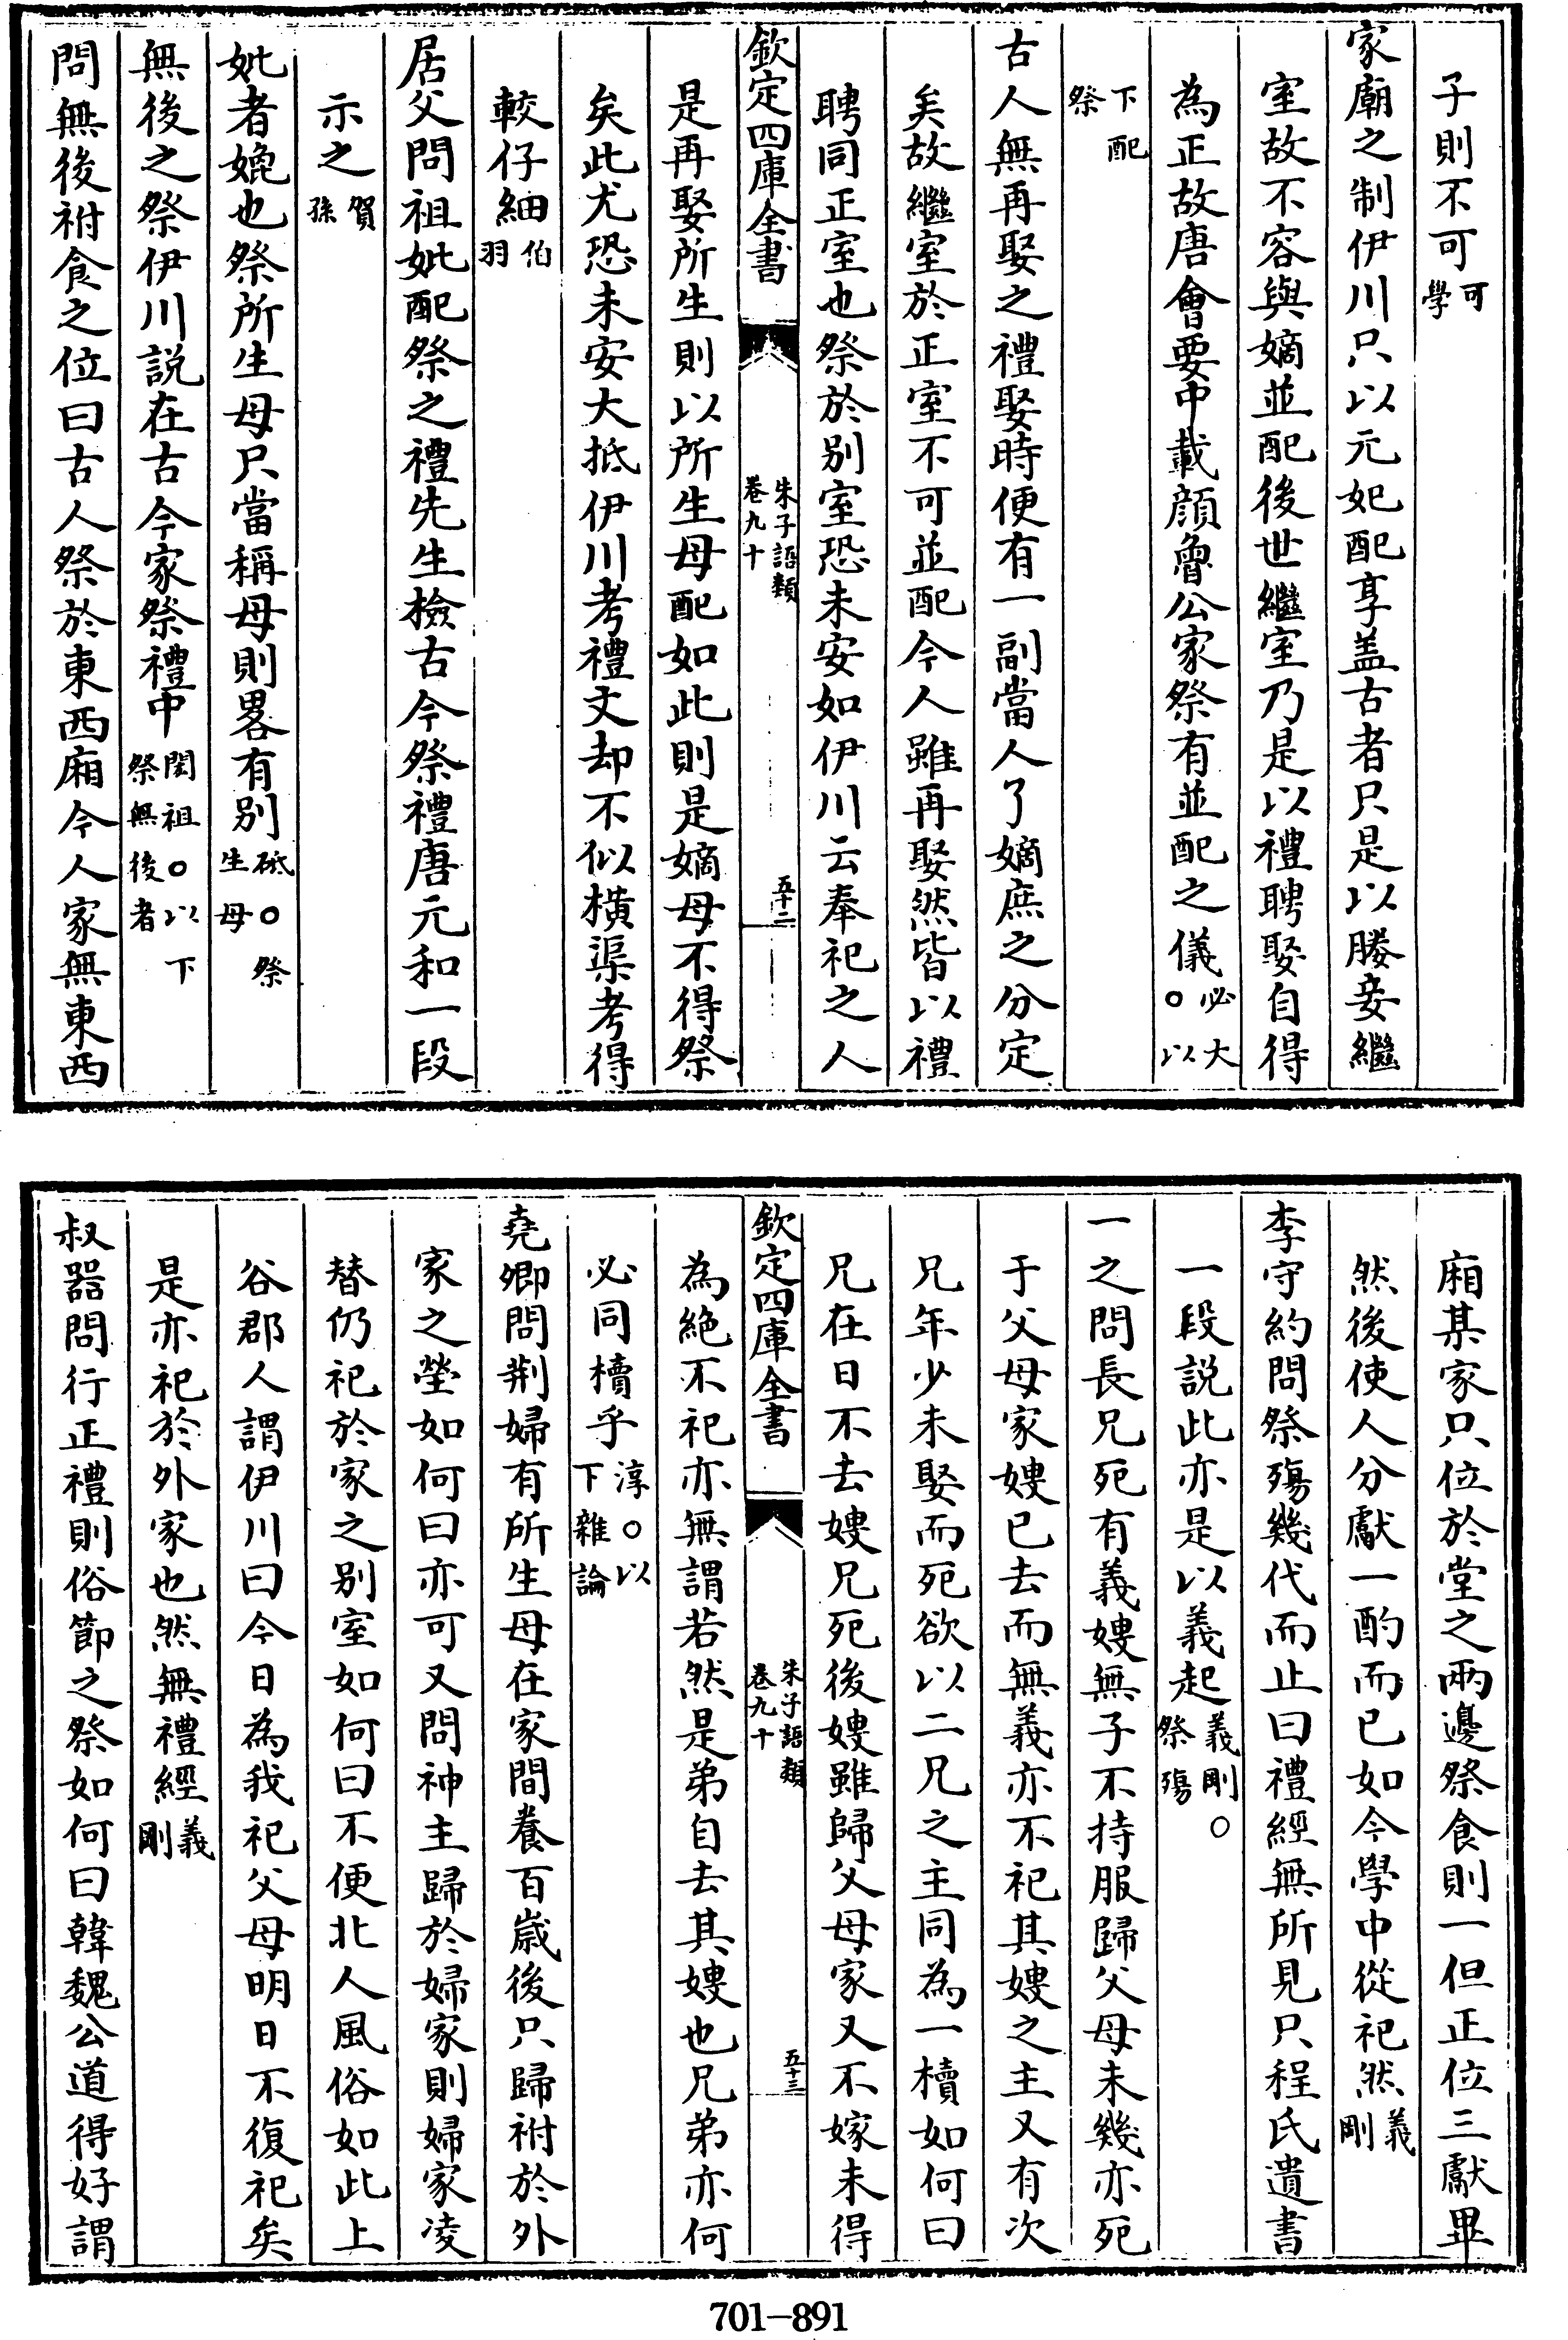 子則不可可學
家廟之制伊川只以元妃配享盖古者只是以媵妾繼
室故不容與嫡並配後世繼室乃是以禮聘娶自得
為正故唐㑹要中載顔魯公家祭有並配之儀必大○以
下配祭
古人無再娶之禮娶時便有一副當人了嫡庶之分定
矣故繼室於正室不可並配今人雖再娶然皆以禮
聘同正室也祭於别室恐未安如伊川云奉祀之人
欽定四庫全書
朱子語類
卷九十
五十二
是再娶所生則以所生母配如此則是嫡母不得祭
矣此尤恐未安大抵伊川考禮文却不似横渠考得
較仔細伯羽
居父問祖妣配祭之禮先生檢古今祭禮唐元和一段
示之賀孫
妣者媲也祭所生母只當稱母則畧有别砥○祭生母
無後之祭伊川説在古今家祭禮中閎祖○以下祭無後者
問無後祔食之位曰古人祭於東西廂今人家無東西
廂某家只位於堂之兩邊祭食則一但正位三獻畢
然後使人分獻一酌而已如今學中從祀然義剛
李守約問祭殤幾代而止曰禮經無所見只程氏遺書
一段説此亦是以義起義剛○祭殤
一之問長兄死有義嫂無子不持服歸父母未幾亦死
于父母家嫂已去而無義亦不祀其嫂之主又有次
兄年少未娶而死欲以二兄之主同為一櫝如何曰
兄在日不去嫂兄死後嫂雖歸父母家又不嫁未得
欽定四庫全書
朱子語類
卷九十
五十三
為絶不祀亦無謂若然是弟自去其嫂也兄弟亦何
必同櫝乎淳○以下雜論
堯卿問荆婦有所生母在家間養百歲後只歸祔於外
家之塋如何曰亦可又問神主歸於婦家則婦家凌
替仍祀於家之别室如何曰不便北人風俗如此上
谷郡人謂伊川曰今日為我祀父母明日不復祀矣
是亦祀於外家也然無禮經義剛
叔器問行正禮則俗節之祭如何曰韓魏公道得好謂
701-891